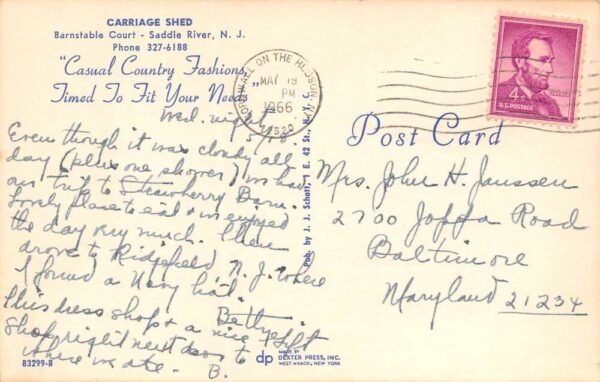 CARRIAGE SHED
Barnstable Court - Saddle River, N. J.
Phone 327-6188
"Casual Country Fashions
Timed To Fit Your Needs"
Wed. night
5/18.
Even though it was cloudy all
day (plus one shower) we had
our trip to Strawberry Barn.
Lovely place to eat & we enjoyed
the day very much. Then
drove to Ridgefield, N. J. where
I found a Navy hat.
Bettye.
This dress shop & a nice gift
shop right next door to
where we ate. B.
83299-B
CORNWALL ON THE HUDSON, N.Y.
MAY 19
PM
1966
12520
4¢
U.S. POSTAGE
LINCOLN
Post Card
Mrs. John H. Janssen
2700 Joppa Road
Baltimore
Maryland 21234
Pub. by J. J. Schott, 1 E. 42 St., N. Y. C.
dp
MADE BY
DEXTER PRESS, INC.
WEST NYACK, NEW YORK